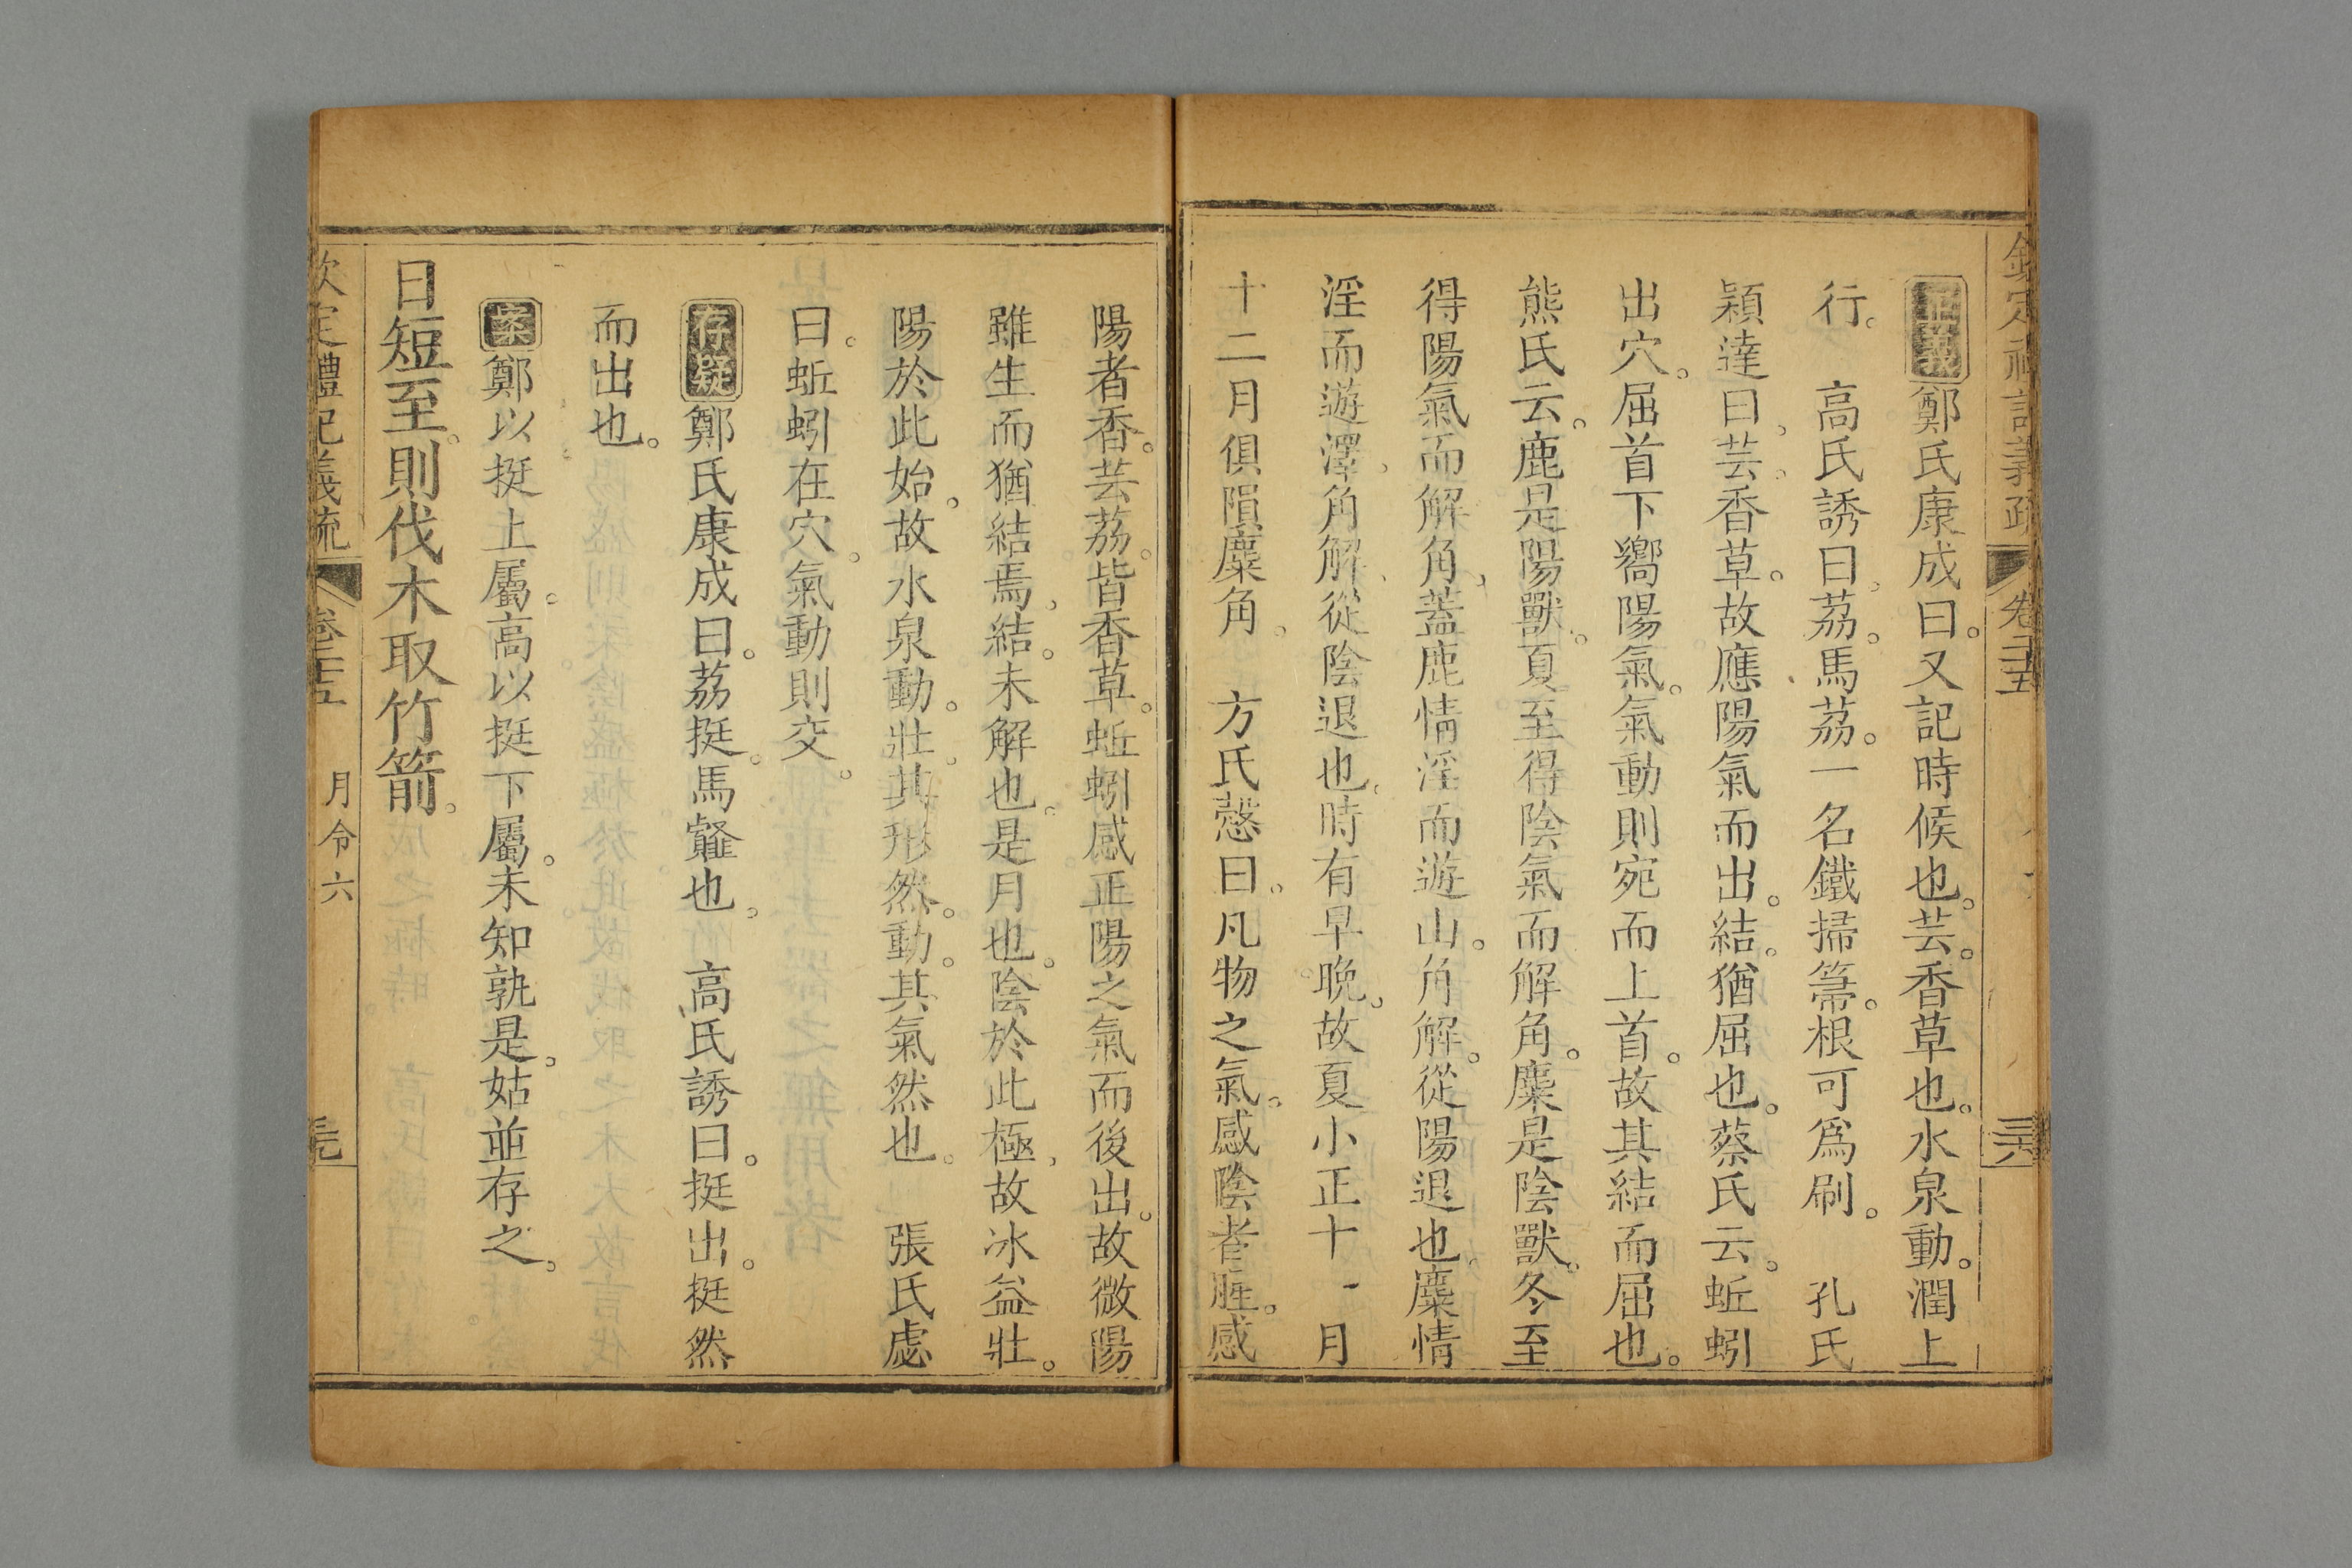 欽定禮記義疏 卷二十五 三六
正義鄭氏康成曰又記時候也芸香草也水泉動潤上
行 高氏誘曰荔馬荔一名鐵掃箒根可爲刷 孔氏
穎達曰芸香草故應陽氣而出結猶屈也蔡氏云蚯蚓
出穴屈首下嚮陽氣氣動則宛而上首故其結而屈也
熊氏云鹿是陽獸夏至得陰氣而解角麋是陰獸冬至
得陽氣而解角葢鹿情淫而遊山角解從陽退也麋情
淫而遊澤角解從陰退也時有早晚故夏小正十一月
十二月俱隕麋角 方氏慤曰凡物之氣感陰者腥感
陽者香芸荔皆香草蚯蚓感正陽之氣而後出故微陽
雖生而猶結焉結未解也是月也陰於此極故冰益壯
陽於此始故水泉動壯其形然動其氣然也 張氏處
曰蚯蚓在穴氣動則交
存疑鄭氏康成曰荔挺馬䪥也 高氏誘曰挺出挺然
而出也
案鄭以挺上屬高以挺下屬未知孰是姑並存之
日短至則伐木取竹箭
欽定禮記義疏 卷二十五 月令六 三九